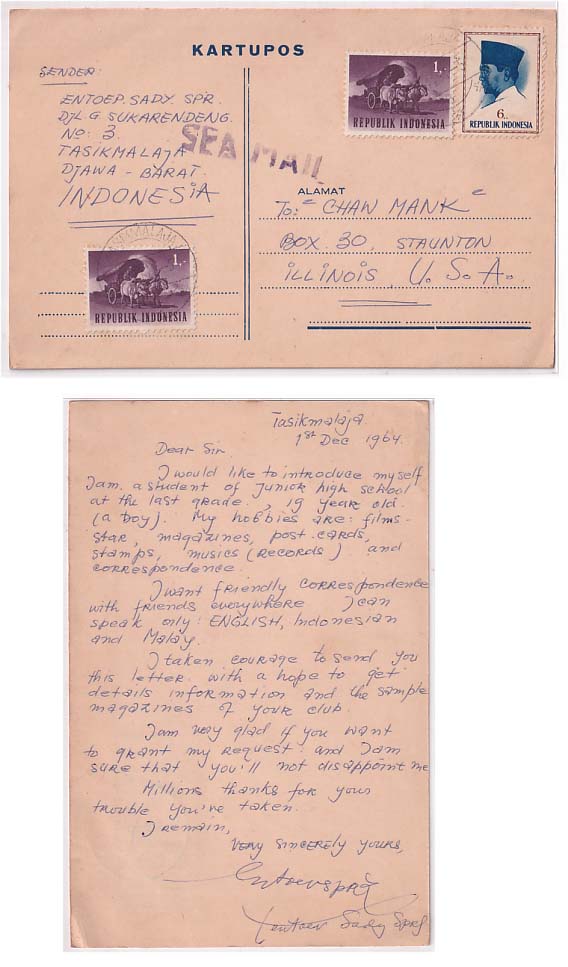 KARTUPOS
SENDER:
ENTOEP. SADY. SPR.
DJL. G. SUKARENDENG.
NO: 3.
TASIKMALAJA
DJAWA - BARAT.
INDONESIA
SEA MAIL
1,-
REPUBLIK INDONESIA
6,-
REPUBLIK INDONESIA
ALAMAT
To: "CHAW MANK"
BOX. 30, STAUNTON
ILLINOIS, U.S.A.
1,-
REPUBLIK INDONESIA
Tasikmalaja.
1st Dec 1964.
Dear Sir.
I would like to introduce myself
I am. a student of Junior high school
at the last grade., 19 year old.
(a boy). My hobbies are: films-
star, magazines, post.cards,
stamps, musics (RECORDS) and
correspondence.
I want friendly correspondence
with friends everywhere I can
speak only: ENGLISH, Indonesian
and Malay.
I taken courage to send you
this letter. with a hope to get
details information and the sample
magazines of your club.
I am very glad if you want
to grant my request. and I am
sure that you'll not disappoint me
Millions thanks for your
trouble you've taken.
I remain,
very sincerely yours,
Entoep Sady Spr